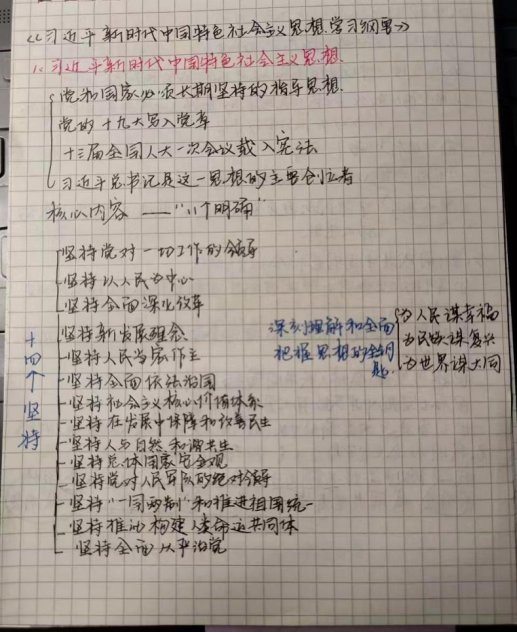 《习近平新时代中国特色社会主义思想学习纲要》
1、习近平新时代中国特色社会主义思想
党和国家必须长期坚持的指导思想
党的十九大写入党章
十三届全国人大一次会议载入宪法
习近平总书记是这一思想的主要创立者
核心内容——"八个明确"
十四个坚持
坚持党对一切工作的领导
坚持以人民为中心
坚持全面深化改革
坚持新发展理念
坚持人民当家作主
坚持全面依法治国
坚持社会主义核心价值体系
坚持在发展中保障和改善民生
坚持人与自然和谐共生
坚持总体国家安全观
坚持党对人民军队的绝对领导
坚持"一国两制"和推进祖国统一
坚持推动构建人类命运共同体
坚持全面从严治党
深刻理解和全面
把握思想的金钥
匙
为人民谋幸福
为民族谋复兴
为世界谋大同